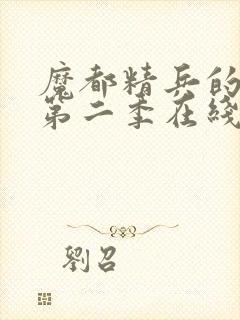 魔都精兵的
第二季在线
劉召